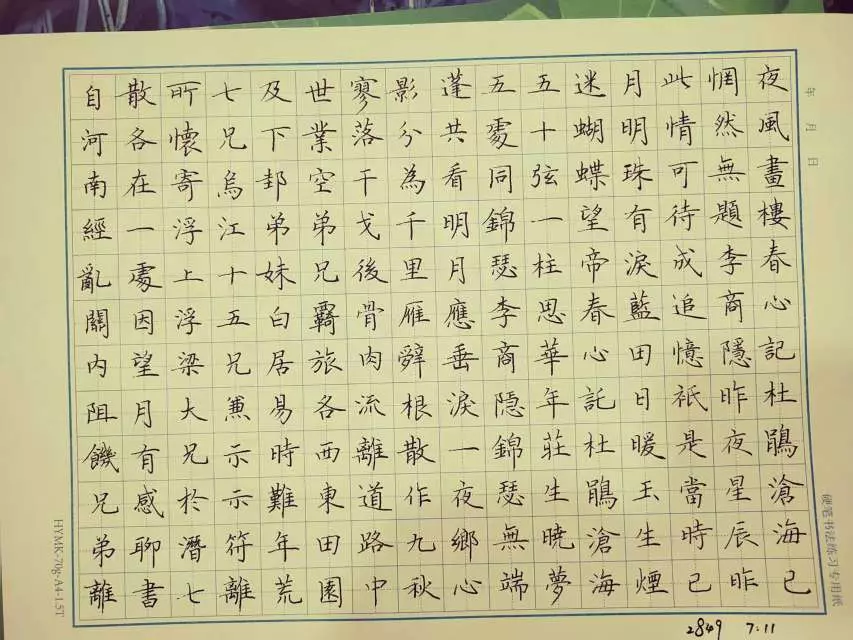 自河南經亂關內阻饑兄弟離
散各在一處因望月有感聊書
所懷寄上浮梁大兄於潛七
七兄烏江十五兄兼示示符離
及下邽弟妹白居易時難年荒
世業空弟兄羈旅各西東田園
寥落干戈後骨肉流離道路中
影分為千里雁辭根散作九秋
蓬共看明月應垂淚一夜鄉心
五處同錦瑟李商隱錦瑟無端
五十弦一柱思華年莊生曉夢
迷蝴蝶望帝春心託杜鵑滄海
月明珠有淚藍田日暖玉生煙
此情可待成追憶祇是當時已
惘然無題李商隱昨夜星辰昨
夜風畫樓春心記杜鵑滄海已
年 月 日
硬笔书法练习专用纸
HYMK-70g-A4-1.5T
2849 7:11